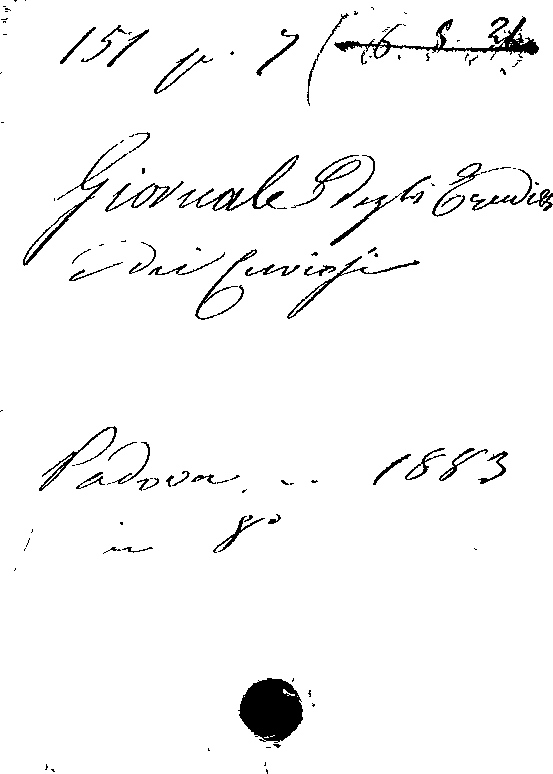 151 p. 7 ( 6. 8. 26
Giornale degli Eruditi
e dei Curiosi
Padova. .. 1883
in 8o